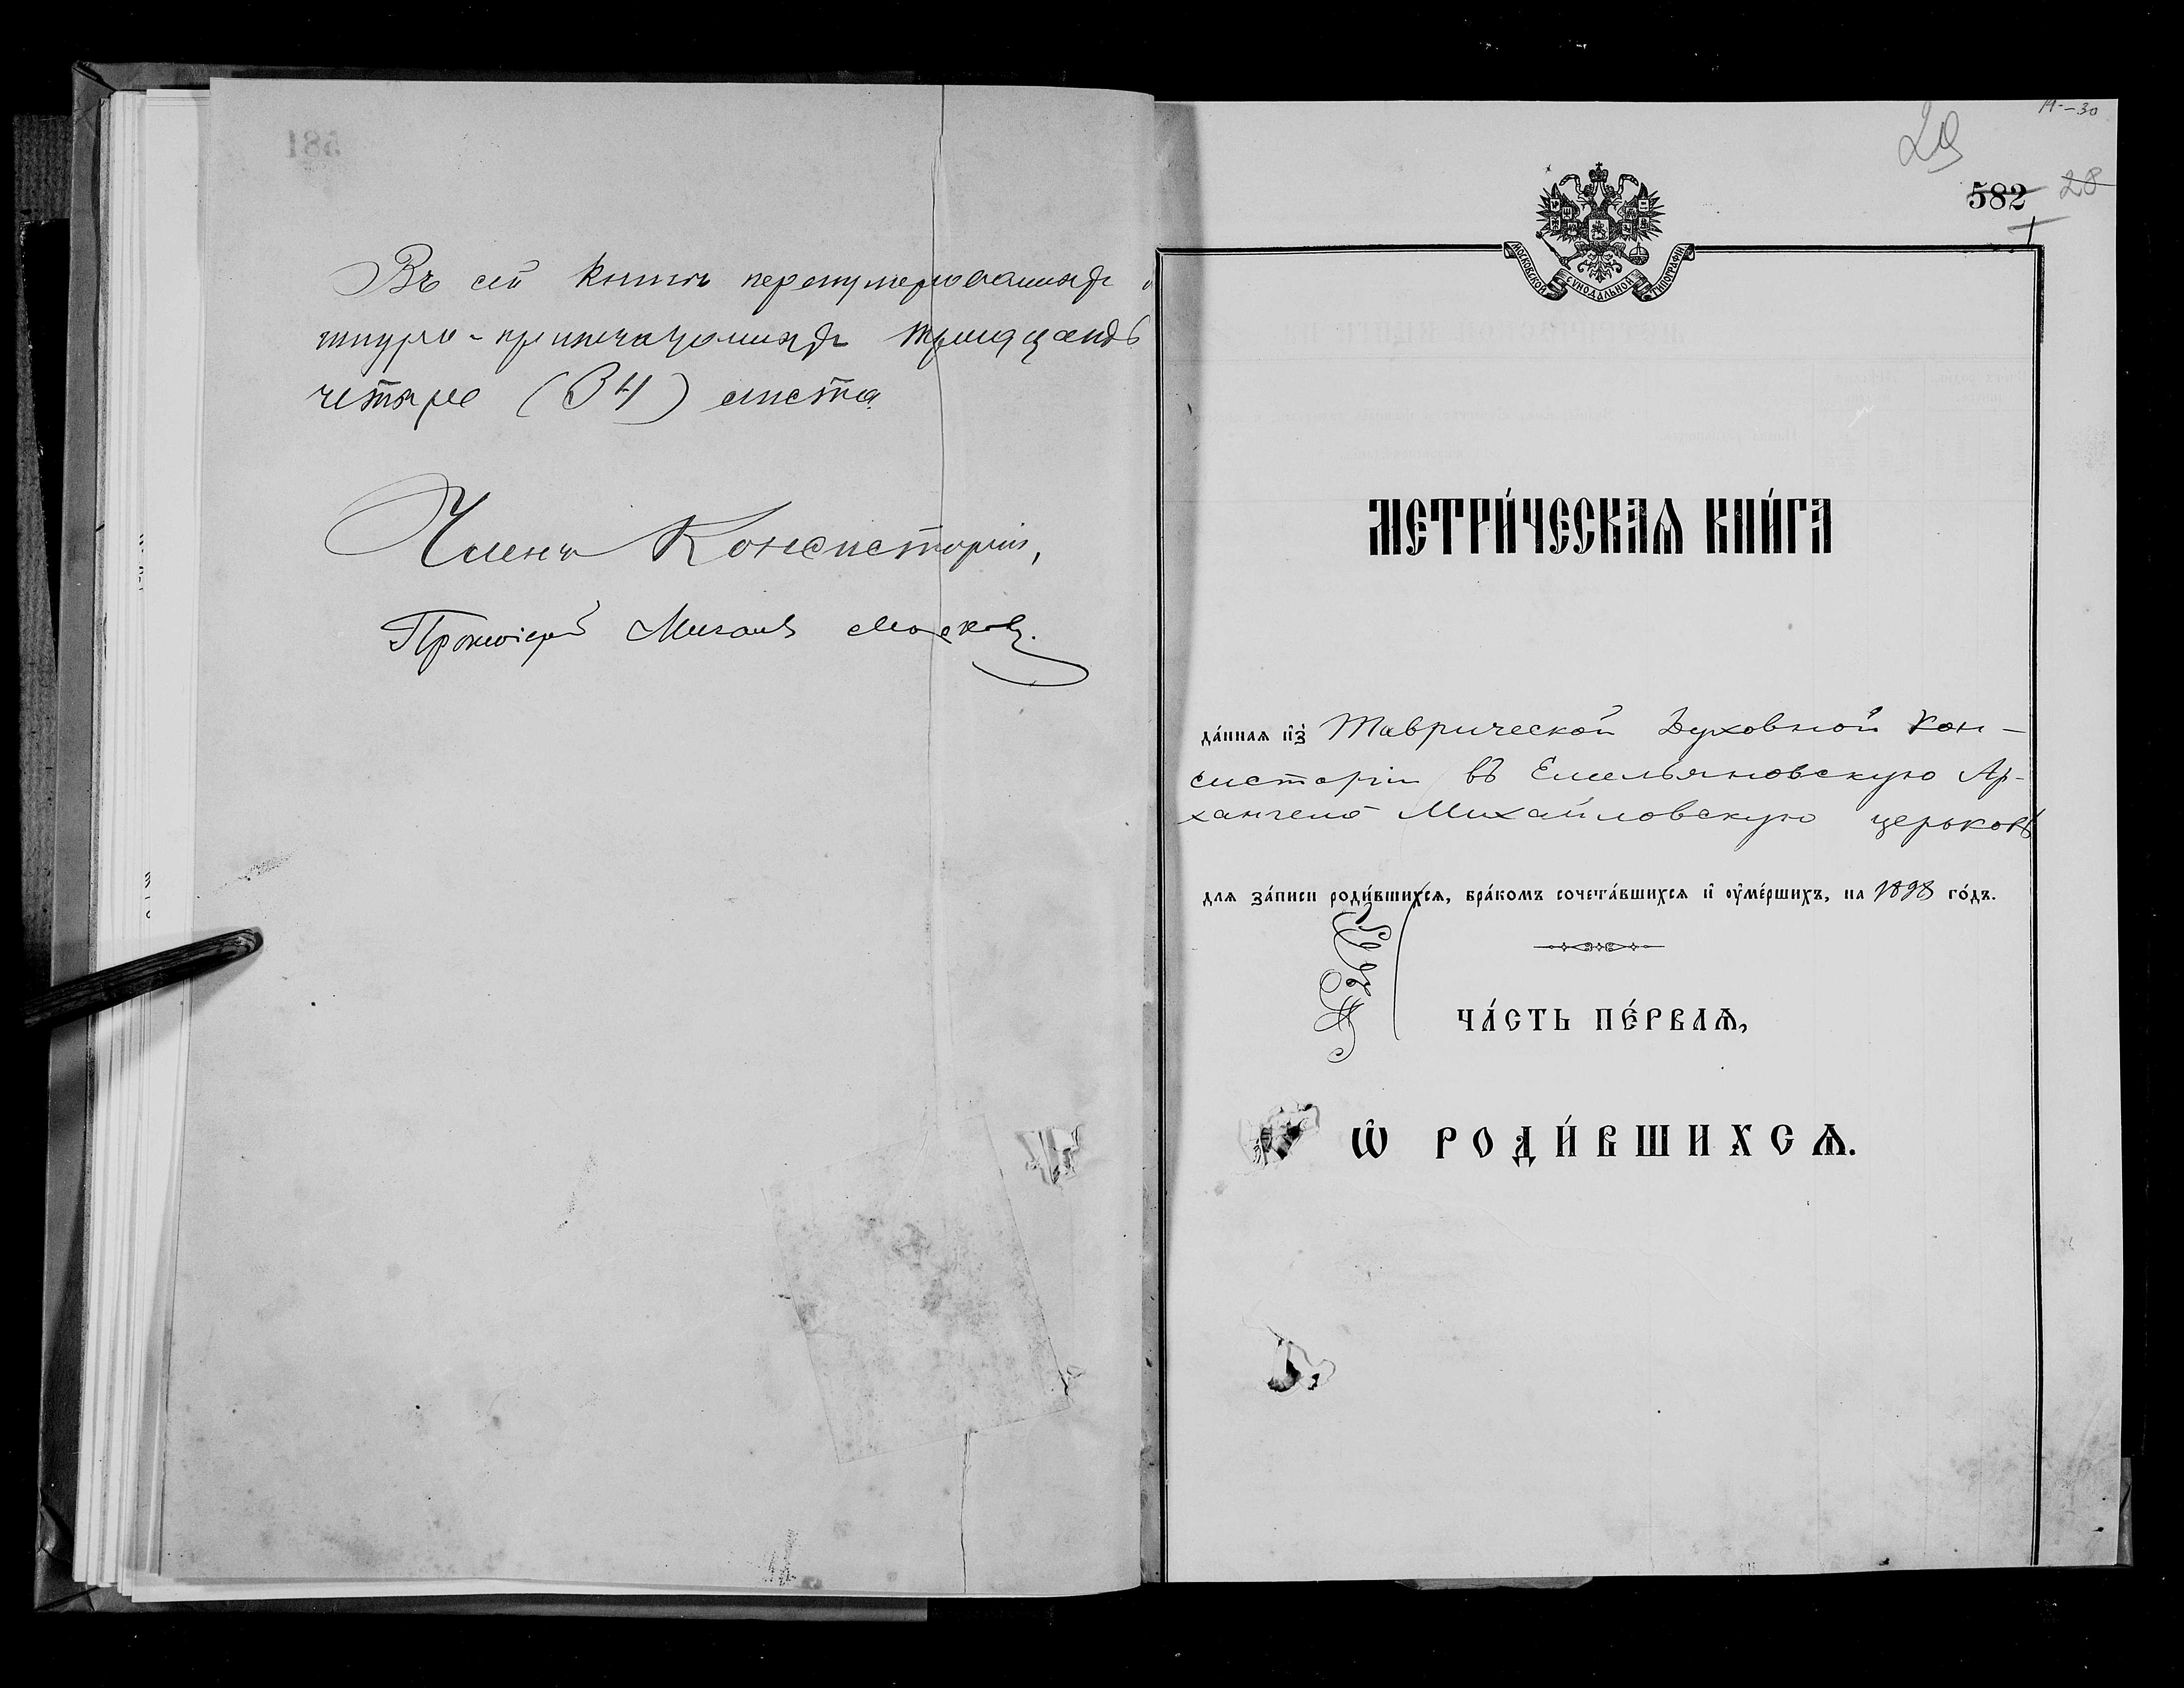 581
Въ сей книгѣ перенумерованныхъ и
шнуро-припечатанныхъ тридцать
четыре (34) листа
Членъ Консисторіи,
Протоіерей Михаилъ
14-30
29
582 28
1
МОСКОВСКОЙ СѴНОДАЛЬНОЙ ТИПОГРАФІИ
МЕТРИ́ЧЕСКАѦ КНИ́ГА
да́ннаѧ и҆з̾ Таврической Духовной Кон-
систоріи въ Емельяновскую Ар-
хангело-Михайловскую церковь
для за́писи роди́вшихсѧ, бра́комъ сочета́вшихсѧ и҆ оу҆ме́ршихъ, на 1898 го́дъ.
ЧА́СТЬ ПЕ́РВАѦ,
Ѽ РОДИ́ВШИХСѦ.